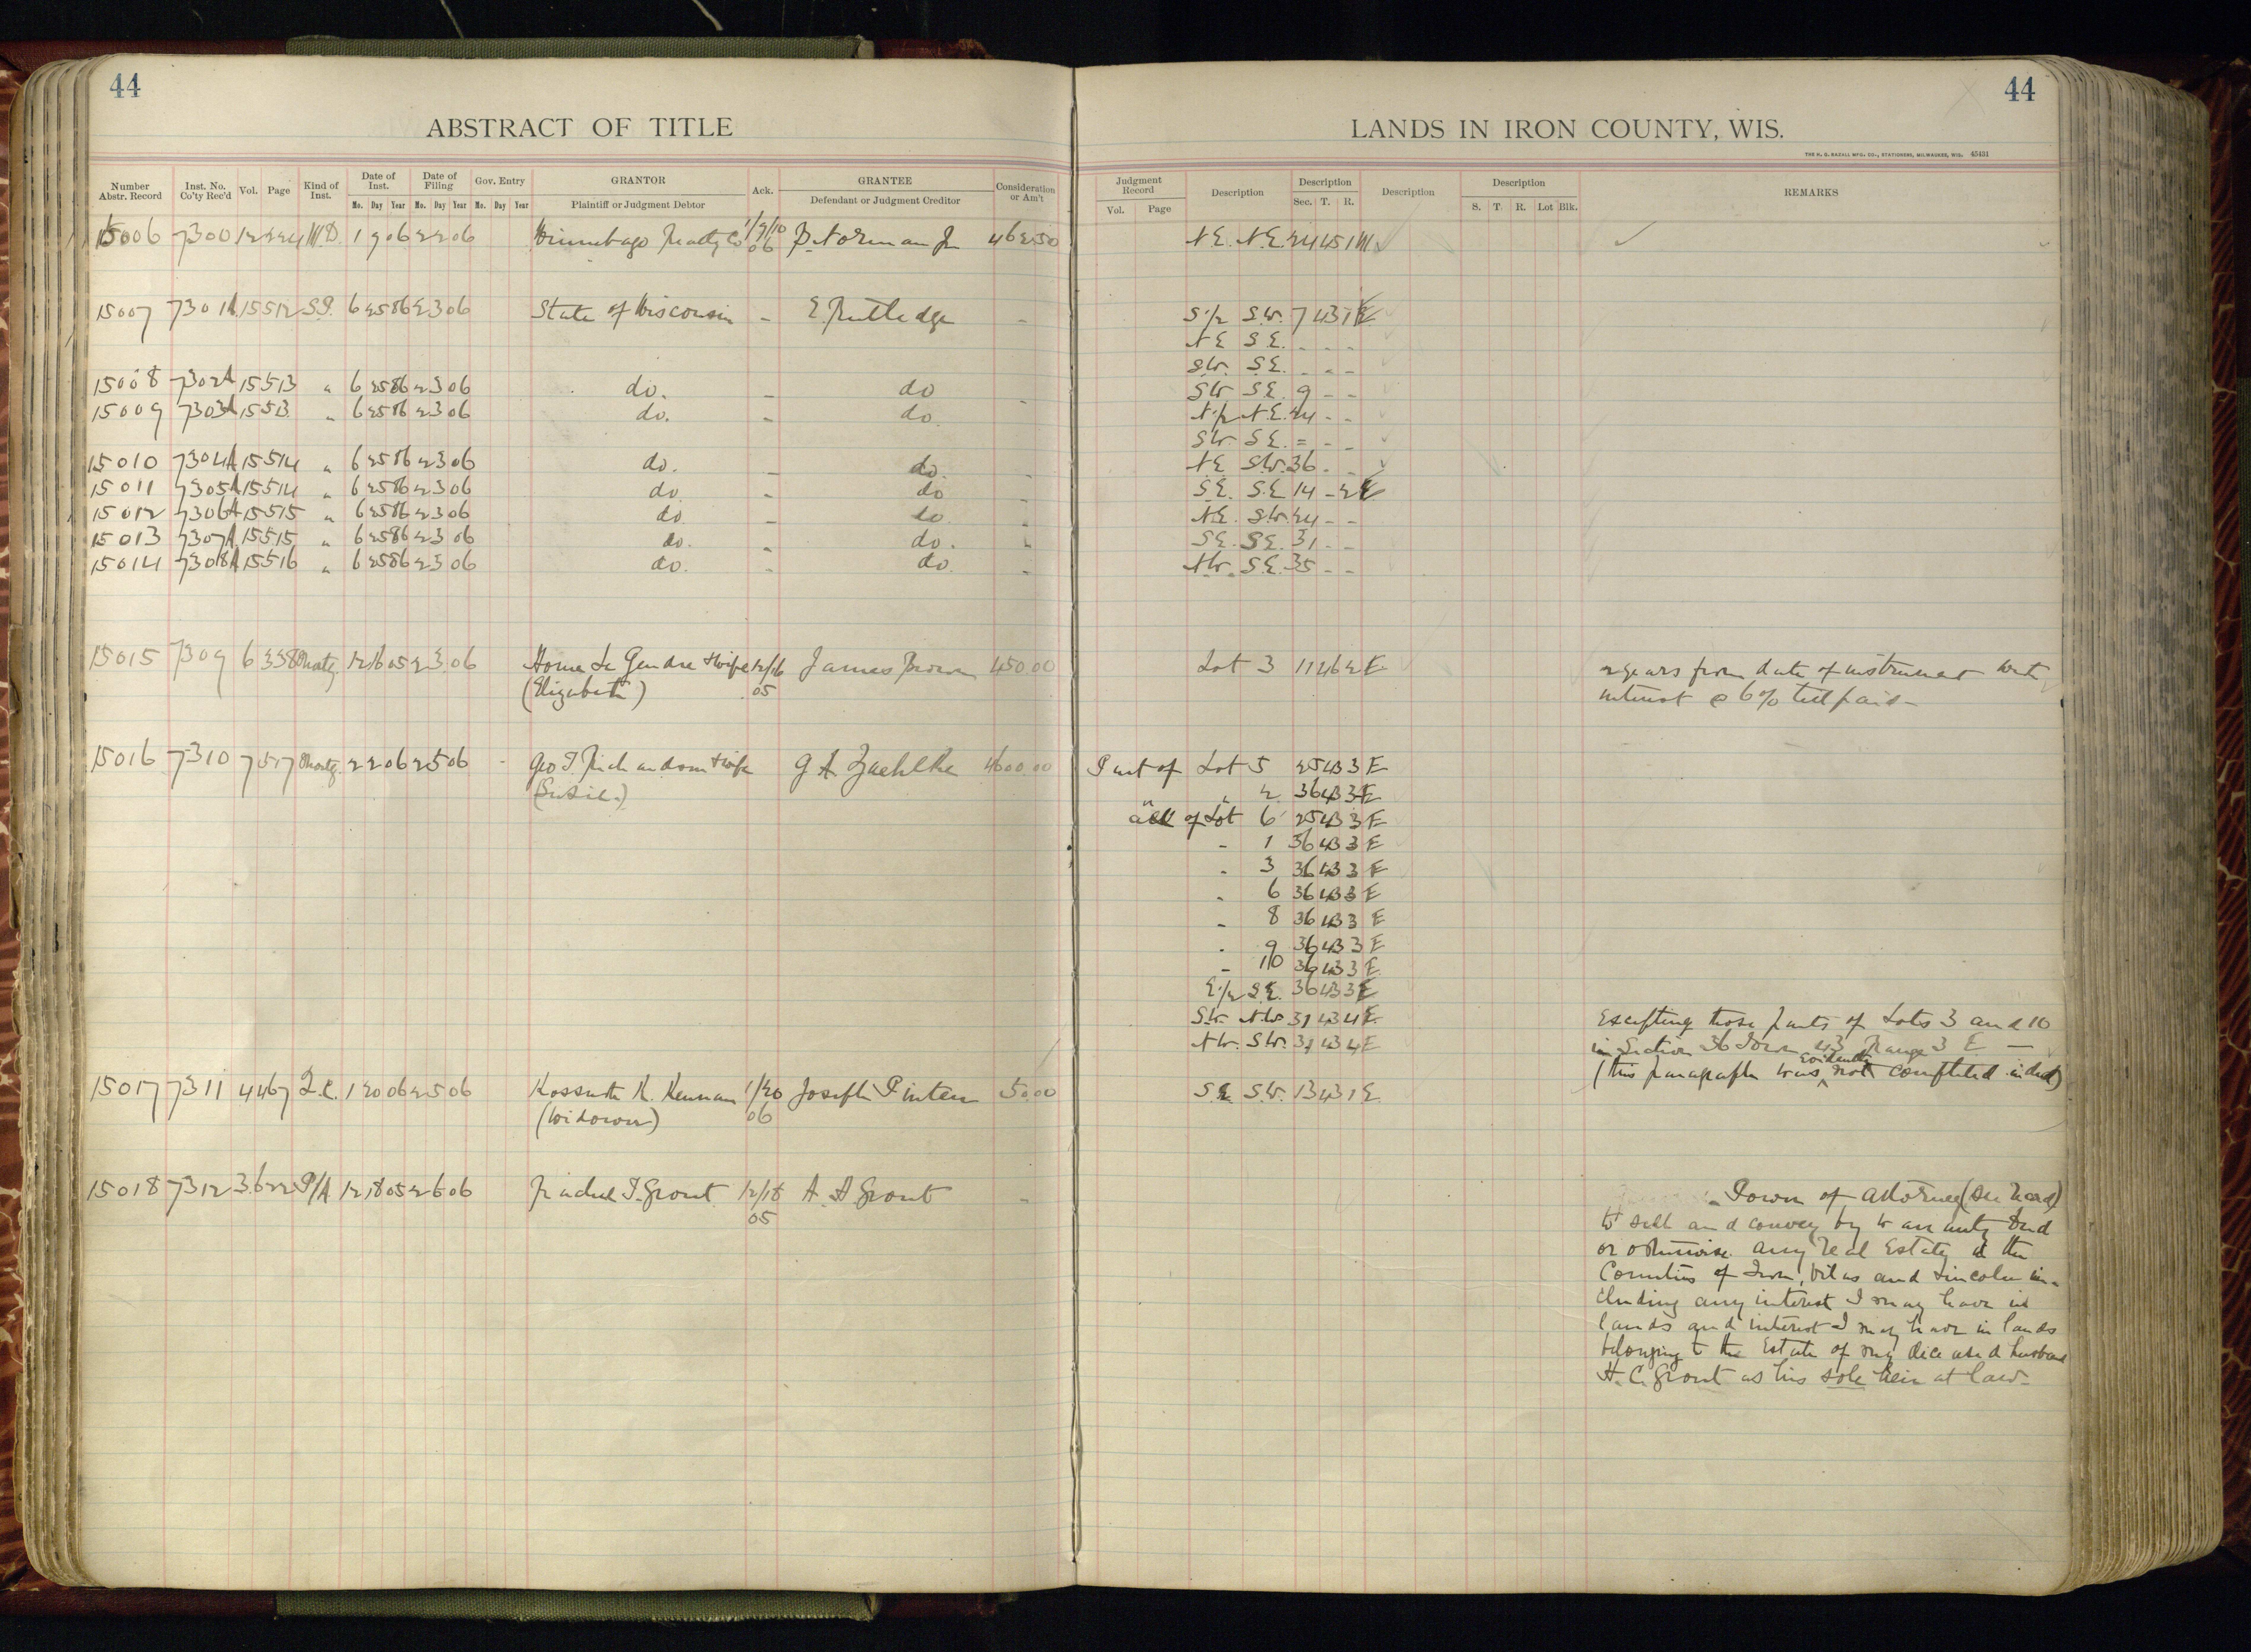 44
44
ABSTRACT OF TITLE
LANDS IN IRON COUNTY, WIS.
THE H. G. RAZALL MFG. CO., STATIONERS, MILWAUKEE, WIS. 45431
Number Abstr. Record Inst. No. Co'ty Rec'd Vol. Page Kind of Inst. Date of Inst. Mo. Day Year Date of Filing Mo. Day Year Gov. Entry Mo. Day Year GRANTOR Plaintiff or Judgment Debtor Ack. GRANTEE Defendant or Judgment Creditor Consideration or Am't
Judgment Record Vol. Page Description Description Sec. T. R. Description Description S. T. R. Lot Blk. REMARKS
15006 7300 12 224 W.D. 1 9 06 2 2 06 Winnebago Realty Co 1/9/10 06 P. Norman Jr 462.50 N.E. N.E. 24 45 1 W
15007 7301A 15 512 S.P. 6 25 86 2 3 06 State of Wisconsin - E. Rutledge - S.1/2 S.W. 7 43 1 E
N E S.E. - - -
S.W. S.E. - - -
15008 7302A 15 513 " 6 25 86 2 3 06 do. - do - SW S.E. 9 - -
15009 7303A 15 513 " 6 25 86 2 3 06 do. - do. N.1/2 N.E. 24 - -
S.W. S.E. = - -
15010 7304A 15 514 " 6 25 86 2 3 06 do. - do. - N.E S.W. 36 - -
15011 7305A 15 514 " 6 25 86 2 3 06 do - do - S.E. S.E 14 - 2 E
15012 7306A 15 515 " 6 25 86 2 3 06 do - do. - N.E. S.W. 24 - -
15013 7307A 15 515 " 6 25 86 2 3 06 do. - do. " S.E. S.E. 31 - -
15014 7308A 15 516 " 6 25 86 2 3 06 do. - do. - N.W. S.E. 35 - -
15015 7309 6 338 Mortg. 12 16 05 2 3 06 Homer Le Gendre & wife 12/16 James Brown 450.00 Lot 3 11 46 2 E 2 years from date of instrument with
(Elizabeth) 05 interest @ 6% till paid -
15016 7310 7 517 Mortg. 2 2 06 2 5 06 - Geo T. Richardson & wife G A Zaehlke 4600.00 Part of Lot 5 25 43 3 E
(Susie.) " " 2 36 43 3 E
all of Lot 6 25 43 3 E
- 1 36 43 3 E
- 3 36 43 3 E
- 6 36 43 3 E
- 8 36 43 3 E
- 9 36 43 3 E
- 10 36 43 3 E
E.1/2 S.E. 36 43 3 E
S.W. N.W. 31 43 4 E Excepting those parts of Lots 3 and 10
N.W. S.W. 31 43 4 E in Section 36 Town 43 Range 3 E —
(this paragraph was evidently not completed in deed)
15017 7311 4 467 Q.C. 1 20 06 2 5 06 Kossuth K. Kennan 1/20 Joseph Pinter 50.00 S.E. S.W. 13 43 1 E.
(Widower) 06
15018 7312 3 622 P/A 12 18 05 2 6 06 Rachel T. Grout 12/18 A. A. Grout - Power of Attorney (See Record)
05 to sell and convey by warranty Deed
or otherwise any real Estate in the
Counties of Iron, Vilas and Lincoln in-
cluding any interest I may have in
lands and interest I may have in lands
belonging to the Estate of my deceased husband
H. C. Grout as his sole heir at law.